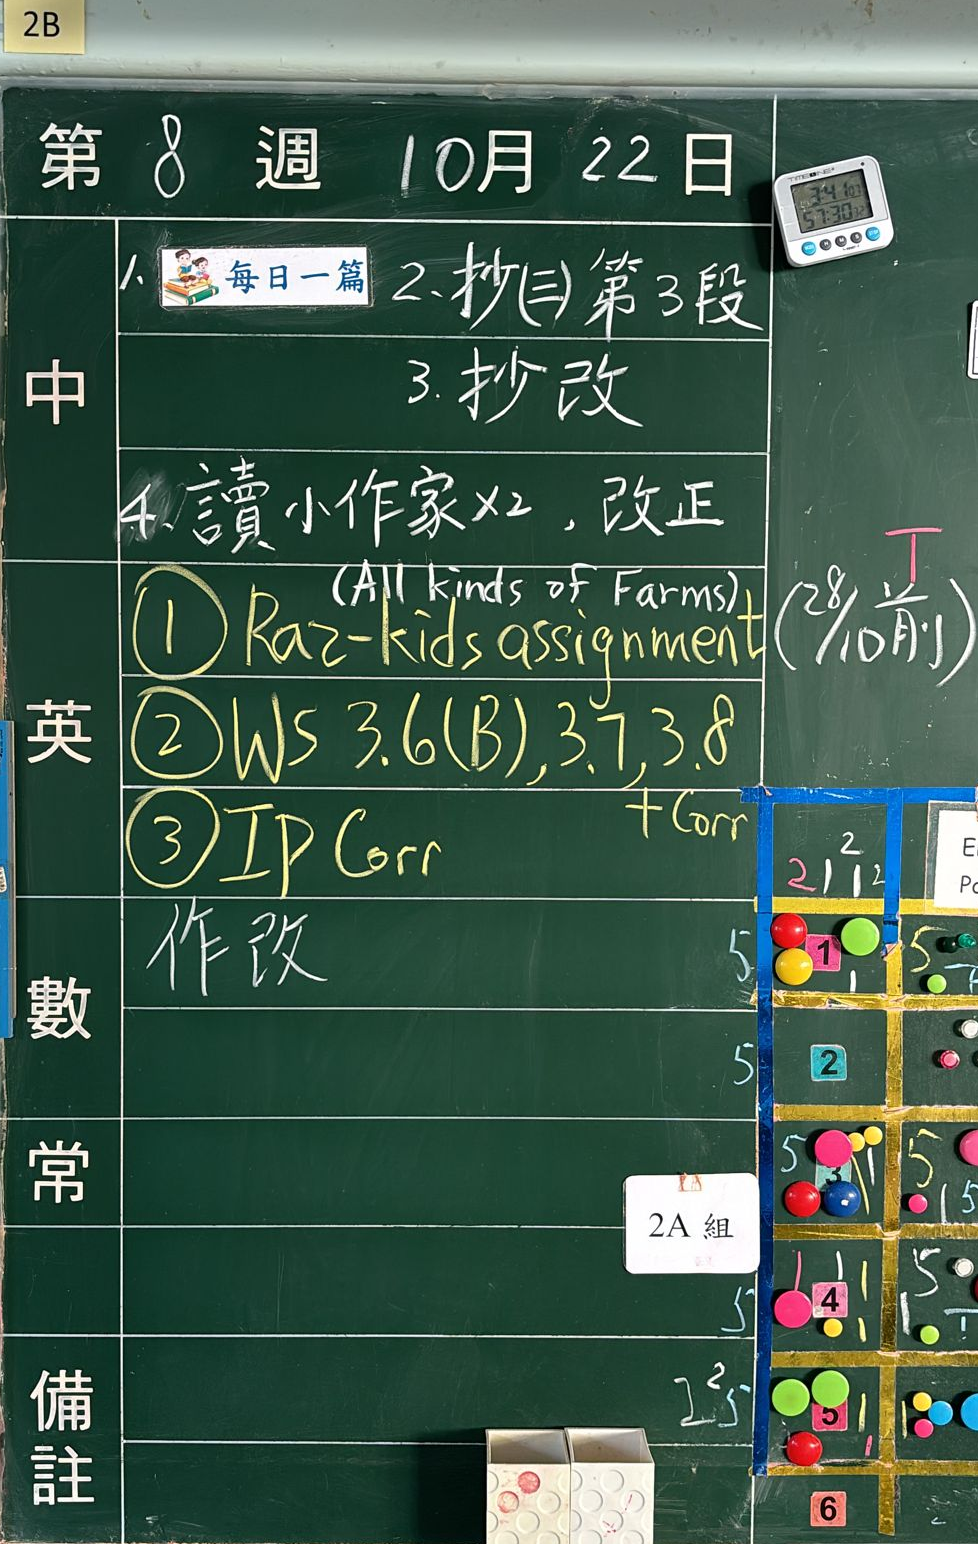 2B
第 8 週 10月 22 日
中
1. 每日一篇 2. 抄(三)第3段
3. 抄改
4. 讀小作家x2, 改正
英
(All kinds of Farms)
① Raz-kids assignment (28/10前)
T
② WS 3.6(B), 3.7, 3.8
+ Corr
③ IP Corr
數
作改
常
2A 組
備註
5
5
5
5
1
2
3
4
5
6